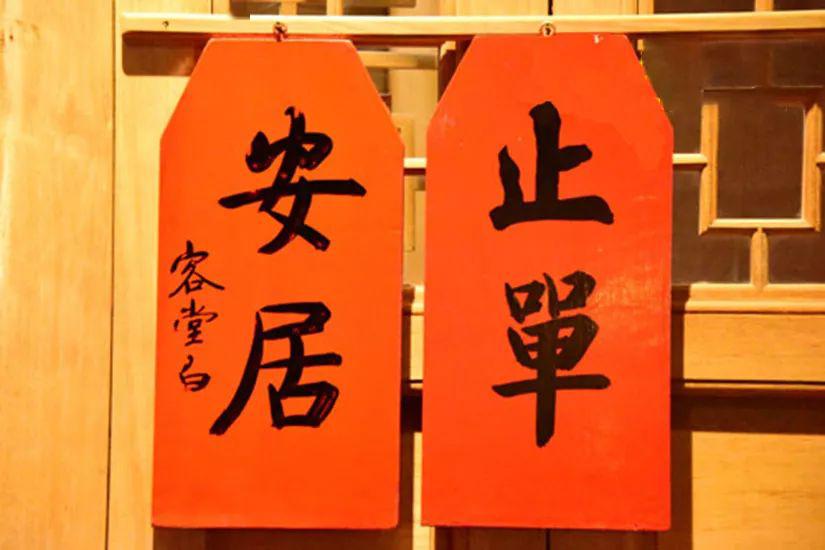 止單
安居
客堂白